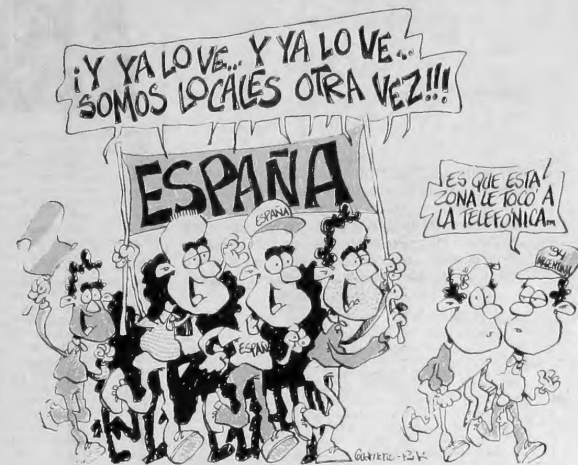 ¡Y YA LO VE... Y YA LO VE...
SOMOS LOCALES OTRA VEZ!!!
ESPAÑA
ESPAÑA
ESPAÑA
¡ES QUE ESTA
ZONA LE TOCÓ A
LA TELEFÓNICA...
94
ARGENTINA